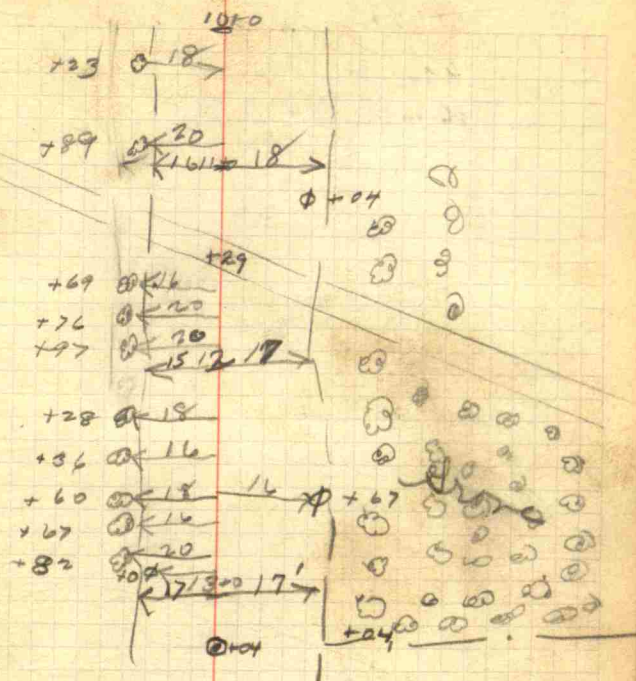 10+0
+23 18
+89 20
16 11+0 18
+04
+29
+69 16
+76 20
+97 20
15 12 17
+28 18
+36 16
+60 18 16 +67
+67 16
+82 20
17 13+0 17'
+04
+04